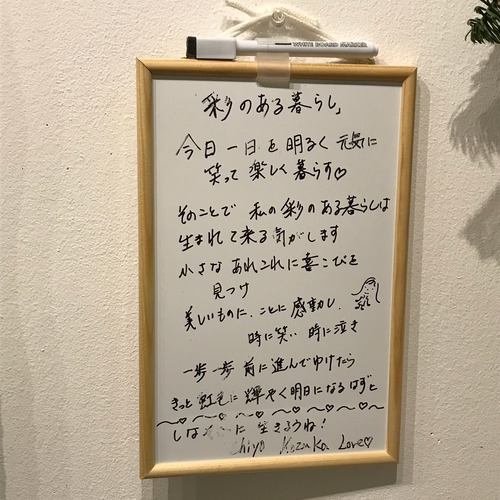 WHITE BOARD MARKER
彩のある暮らし」
今日一日を明るく元気に
笑って楽しく暮らす♡
そのことで 私の彩のある暮らしは
生まれて来る気がします
小さな あれこれに喜こびを
見つけ
美しいものに、ことに感動し、
時に笑い 時に泣き
一歩一歩 前に進んでゆけたら
きっと虹色に輝やく明日になるはずと
しな に生きようね!
chiyo Kozuka Love♡